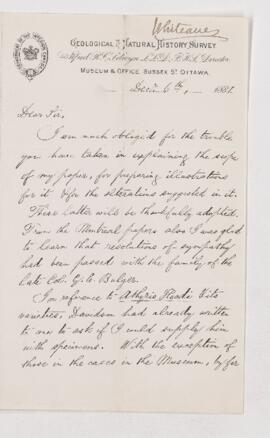 Whiteaves
GEOLOGICAL & NATURAL HISTORY SURVEY
Alfred R. C. Selwyn L.L.D., F.R.S., Director
MUSEUM & OFFICE, SUSSEX ST. OTTAWA.
Decr. 6th, — 1881.
Dear Sir,
I am much obliged for the trouble
you have taken in explaining the scope
of my paper, for preparing illustrations
for it & for the alterations suggested in it.
These latter will be thankfully adopted.
From the Montreal papers also I was glad
to learn that resolutions of sympathy
had been passed with the family of the
late Col. G. E. Bulger.
In reference to Athyris & its
varieties, Davidson had already written
to me to ask if I could supply him
with specimens. With the exception of
those in the cases in the Museum, by far